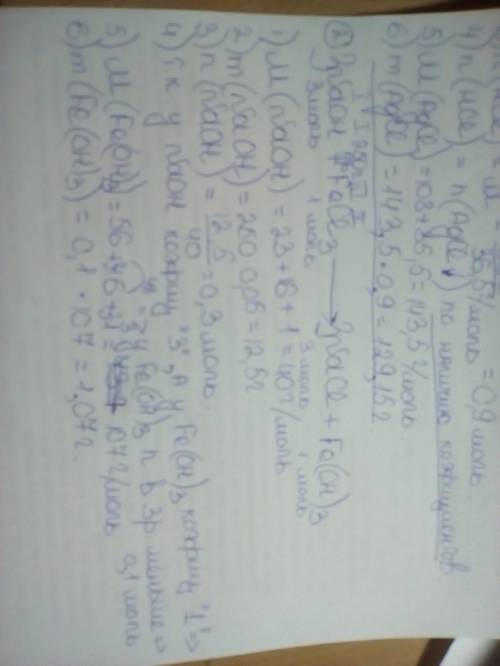 M 36,5 г/моль = 0,9 моль
4) n(HCl) = n(AgCl) по наличию коэфициентов
5) M(AgCl) = 108+35,5 = 143,5 г/моль
6) m(AgCl) = 143,5 · 0,9 = 129,15 г
② 3NaOH + FeCl3 → 3NaCl + Fe(OH)3
3 моль 1 моль 3 моль 1 моль
1) M(NaOH) = 23 + 16 + 1 = 40 г/моль
2) m(NaOH) = 250 · 0,05 = 12,5 г
3) n(NaOH) = 12,5 / 40 = 0,3 моль
4) т.к у NaOH коэфиц "3", а у Fe(OH)3 коэфиц "1" ⇒
у Fe(OH)3 n в 3р меньше ⇒ 0,1 моль
5) M(Fe(OH)3) = 56 + 107 г/моль
6) m(Fe(OH)3) = 0,1 · 107 = 1,07 г.